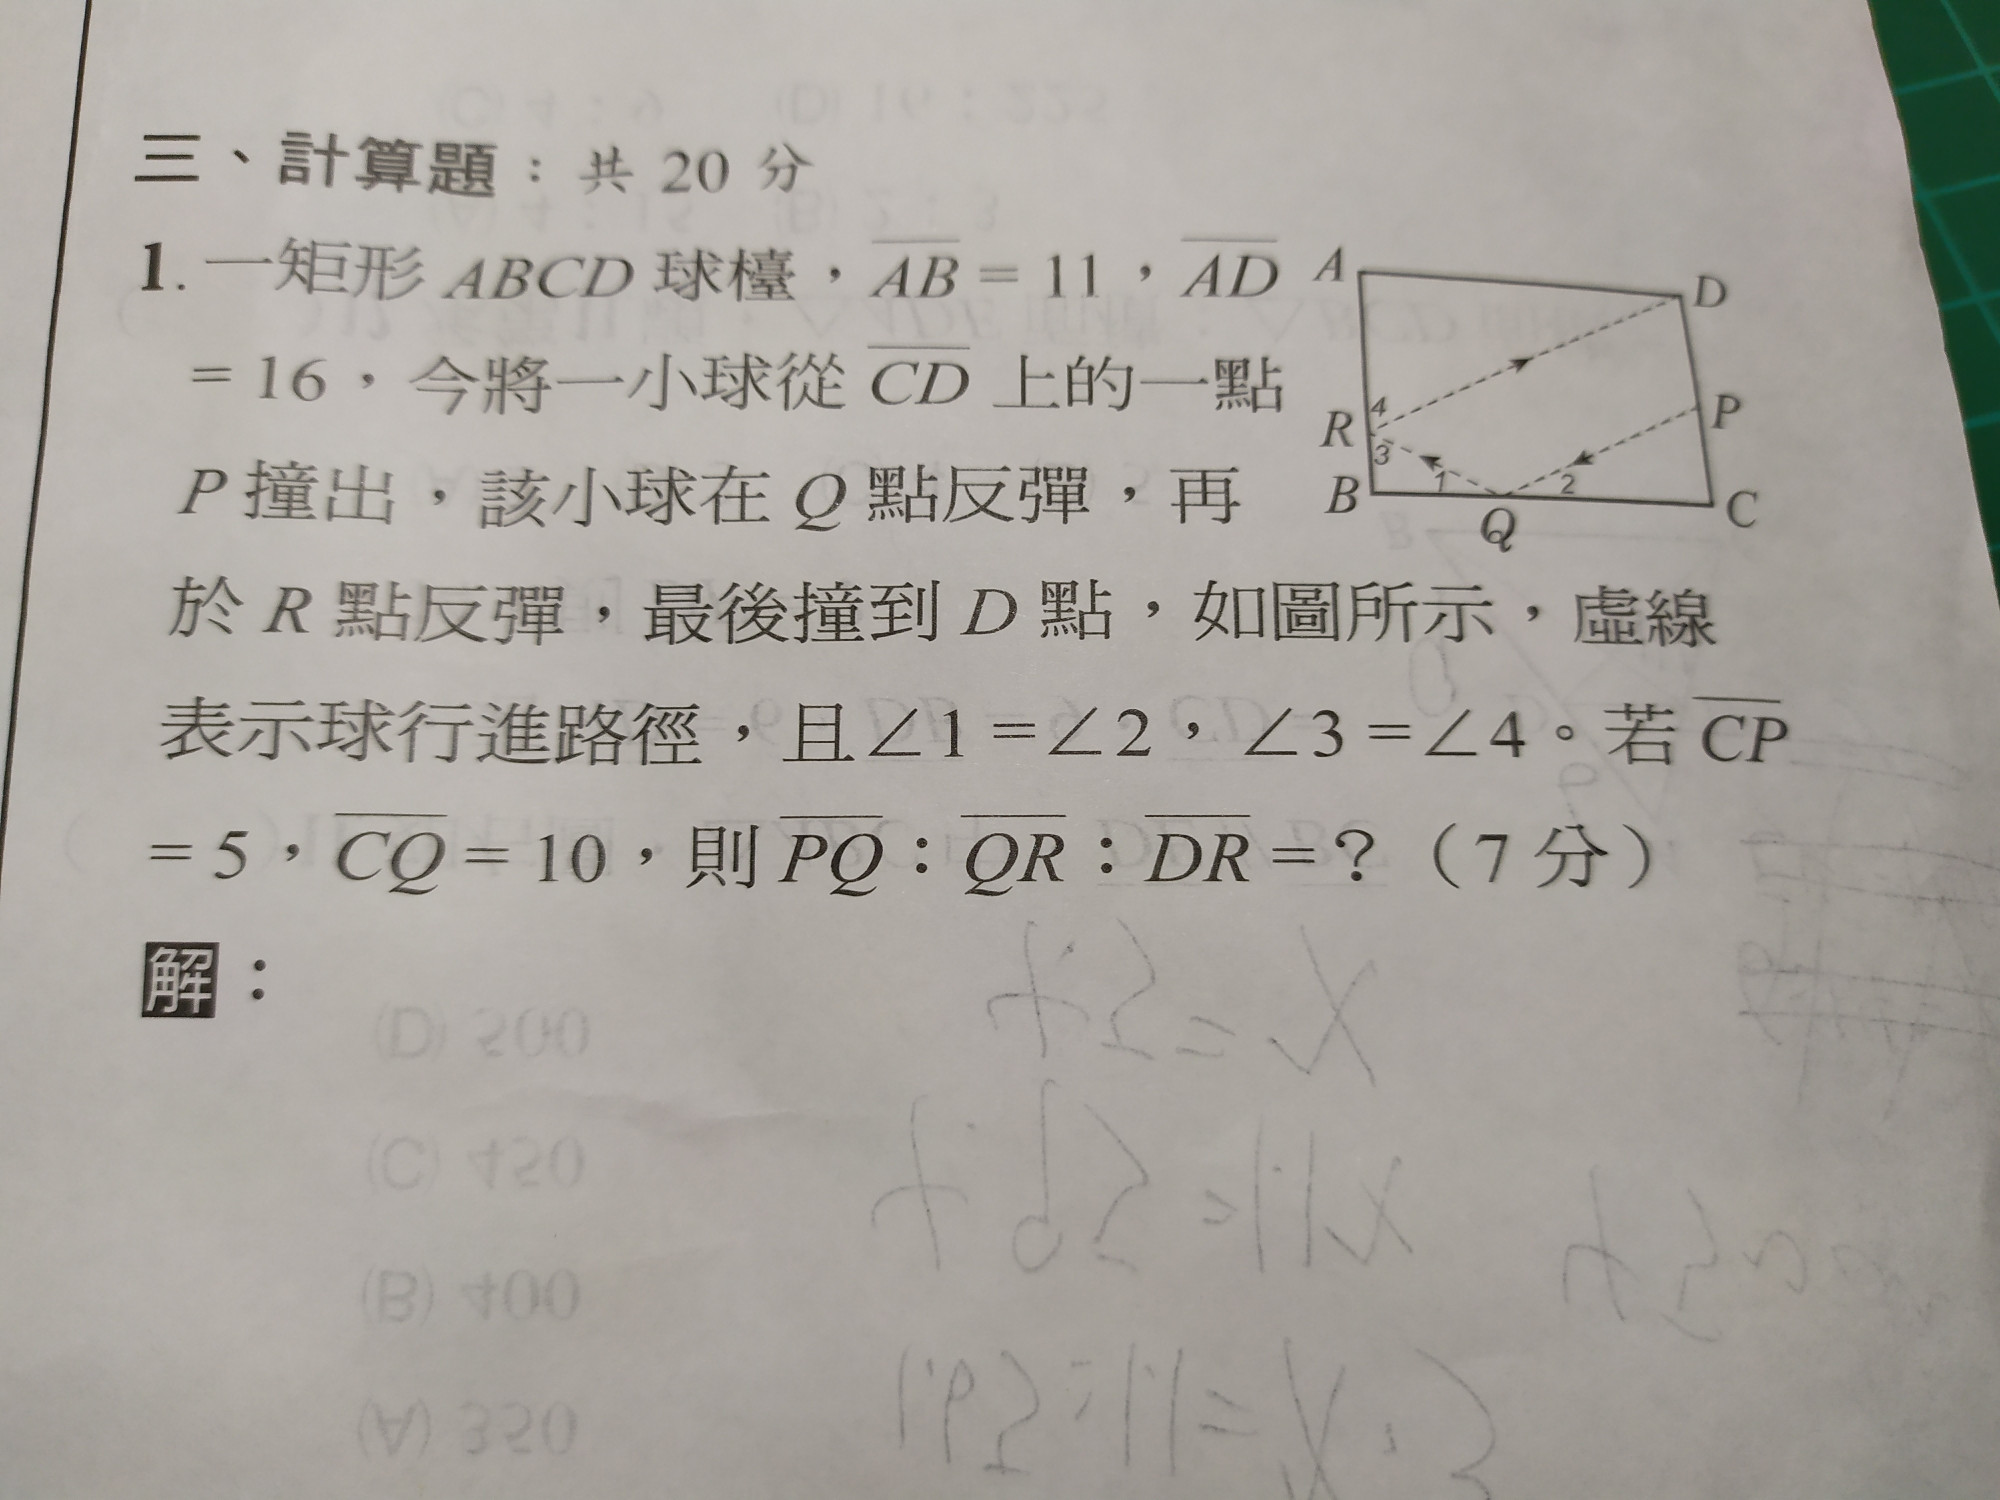 三、計算題：共 20 分
1. 一矩形 ABCD 球檯，AB = 11，AD
= 16，今將一小球從 CD 上的一點
P 撞出，該小球在 Q 點反彈，再
於 R 點反彈，最後撞到 D 點，如圖所示，虛線
表示球行進路徑，且∠1 =∠2，∠3 =∠4。若 CP
= 5，CQ = 10，則 PQ：QR：DR =？（7 分）
解：
A
D
4
R
3
P
B
1
2
Q
C
(D) 500
(C) 450
(B) 400
(A) 350